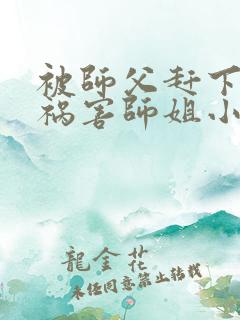 被師父赶下
祸害師姐小
龍金花
未经同意禁止转载